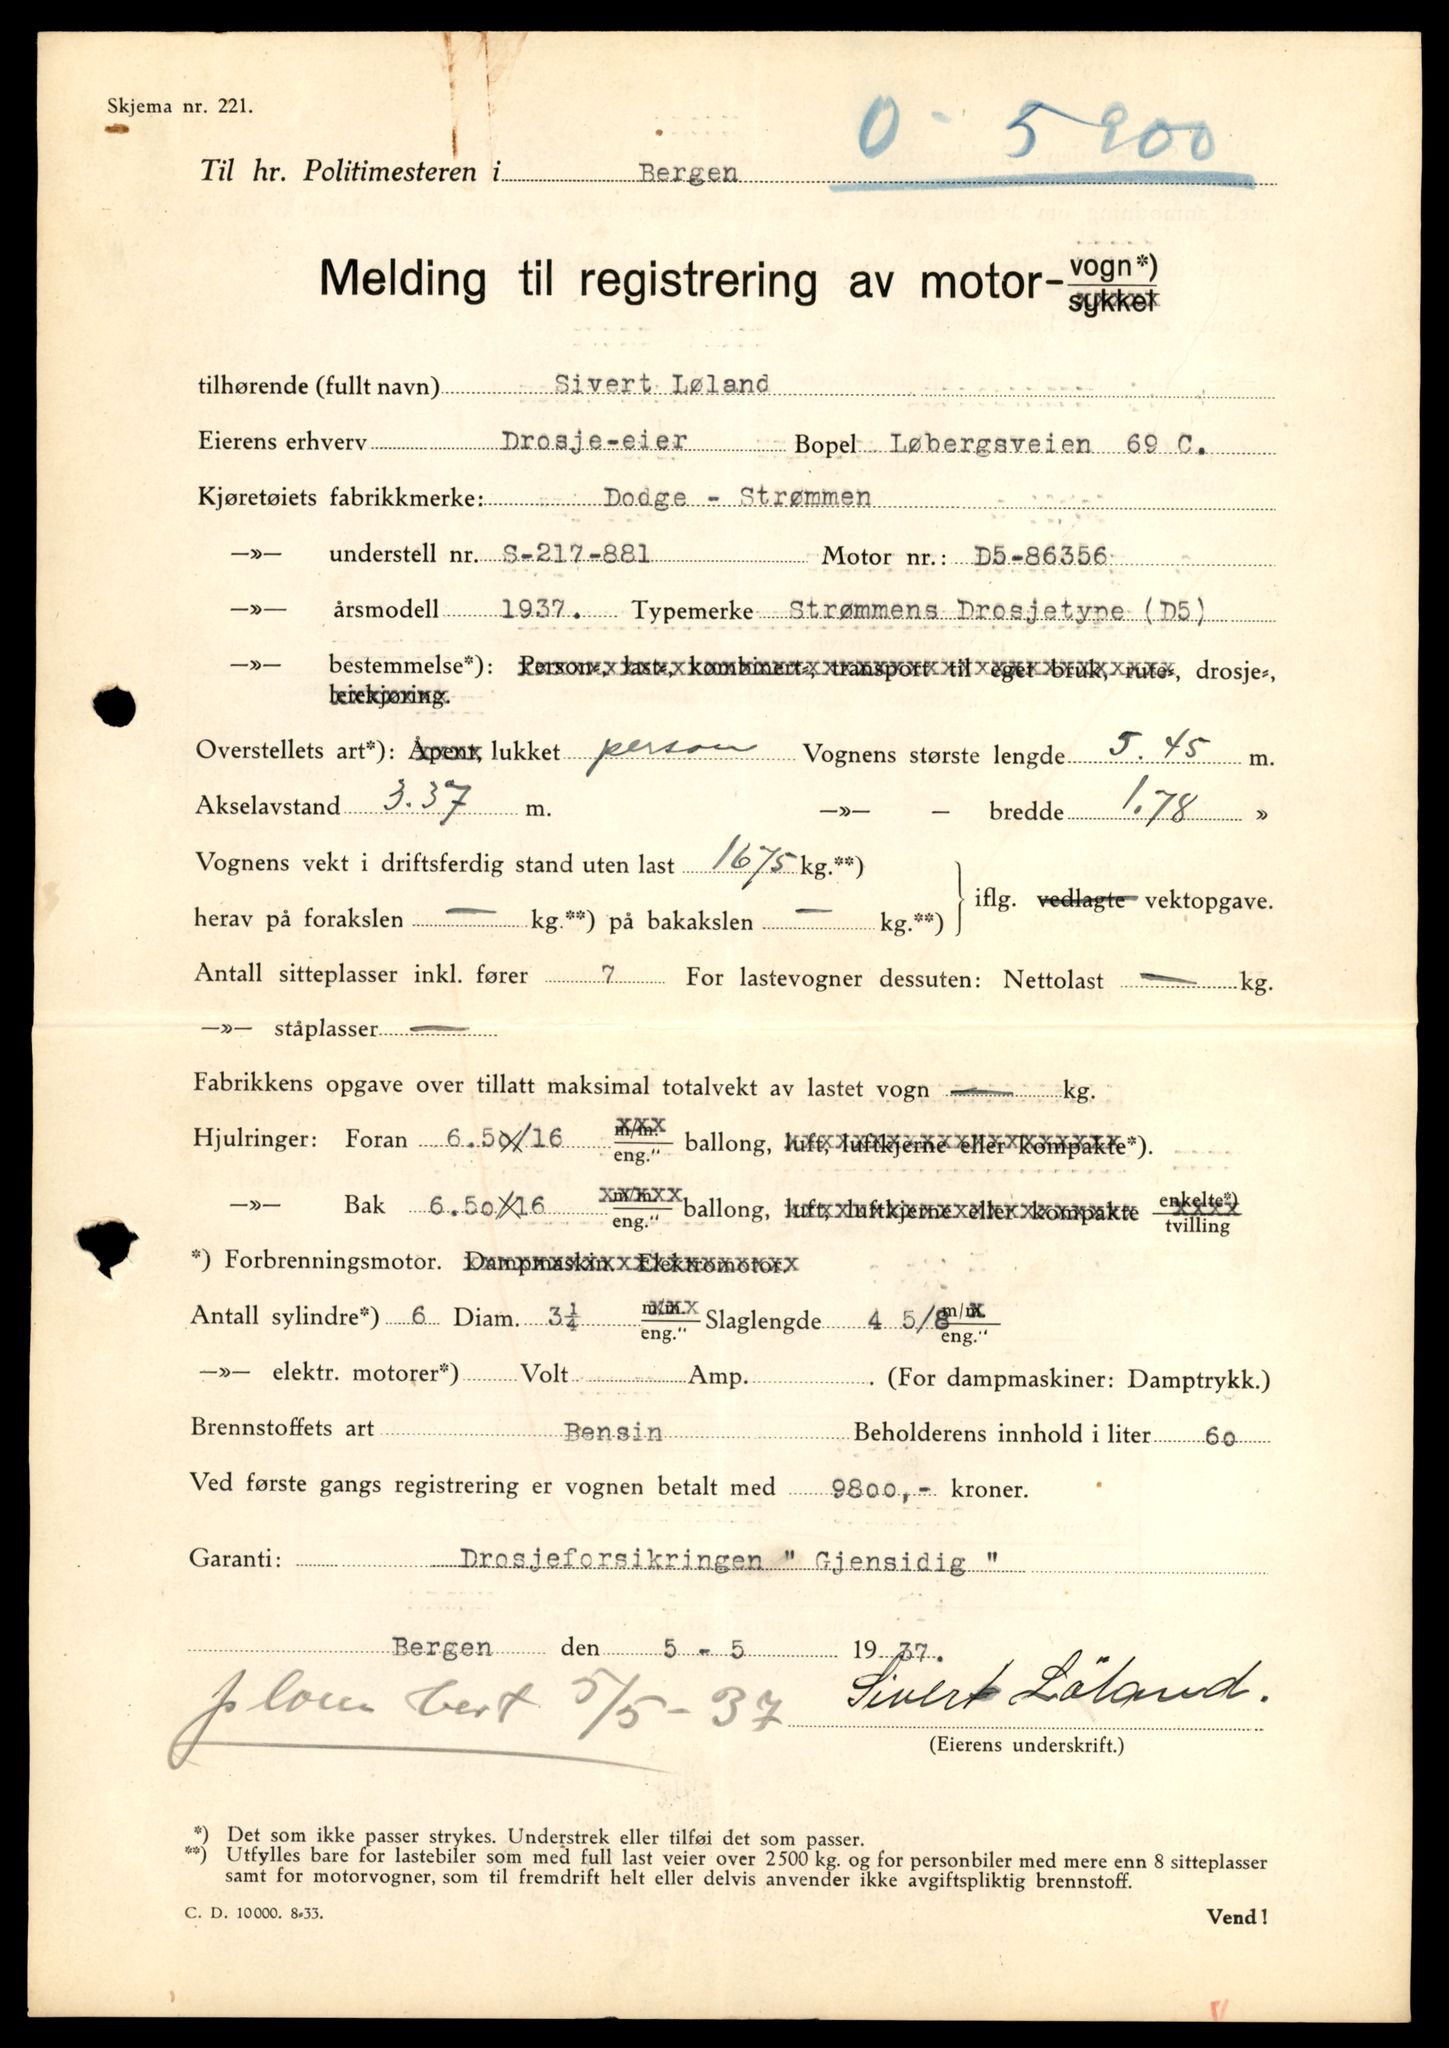 Skjema nr. 221.
O - 5900
Til hr. Politimesteren i Bergen
Melding til registrering av motor- vogn*)
sykkel
tilhørende (fullt navn) Sivert Løland
Eierens erhverv Drosje-eier Bopel Løbergsveien 69 C.
Kjøretøiets fabrikkmerke: Dodge - Strømmen
—»— understell nr. S-217-881 Motor nr.: D5-86356
—»— årsmodell 1937. Typemerke Strømmens Drosjetype (D5)
—»— bestemmelse*): Person-, last-, kombinert-, transport til eget bruk, rute-, drosje-,
leiekjøring.
Overstellets art*): Åpent, lukket person Vognens største lengde 5.45 m.
Akselavstand 3.37 m. —»— — bredde 1.78 »
Vognens vekt i driftsferdig stand uten last 1675 kg.**)
iflg. vedlagte vektopgave.
herav på forakslen — kg.**) på bakakslen — kg.**)
Antall sitteplasser inkl. fører 7 For lastevogner dessuten: Nettolast — kg.
—»— ståplasser —
Fabrikkens opgave over tillatt maksimal totalvekt av lastet vogn — kg.
Hjulringer: Foran 6.50/16 m/m. eng." ballong, luft, luftkjerne eller kompakte*).
—»— Bak 6.50/16 m/m. eng." ballong, luft, luftkjerne eller kompakte enkelte*) tvilling
*) Forbrenningsmotor. Dampmaskin. Elektromotor.
Antall sylindre*) 6 Diam. 3¼ m/m. eng." Slaglengde 4 5/8 m/m. eng."
—»— elektr. motorer*) Volt Amp. . (For dampmaskiner: Damptrykk.)
Brennstoffets art Bensin Beholderens innhold i liter 60
Ved første gangs registrering er vognen betalt med 9800,- kroner.
Garanti: Drosjeforsikringen " Gjensidig "
Bergen den 5 - 5 1937.
plombert 5/5-37 Sivert Löland.
(Eierens underskrift.)
*) Det som ikke passer strykes. Understrek eller tilføi det som passer.
**) Utfylles bare for lastebiler som med full last veier over 2500 kg. og for personbiler med mere enn 8 sitteplasser
samt for motorvogner, som til fremdrift helt eller delvis anvender ikke avgiftspliktig brennstoff.
C. D. 10000. 8-33. Vend!